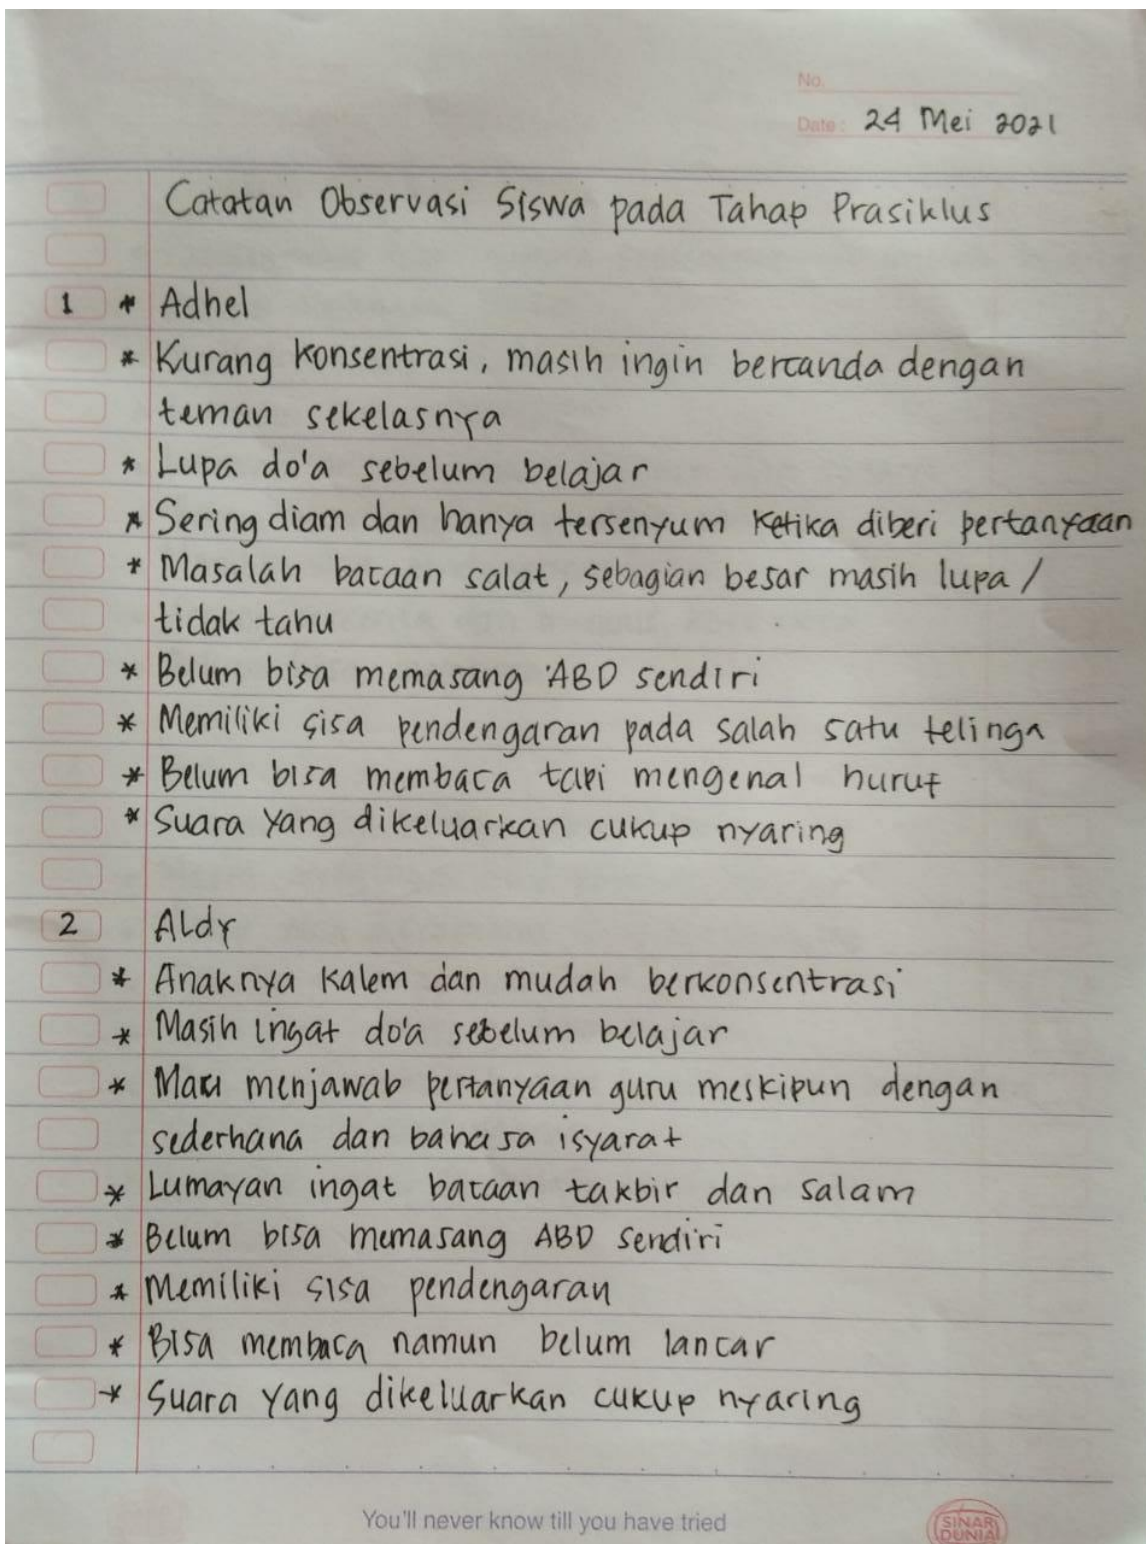 No.
Date: 24 Mei 2021
Catatan Observasi Siswa pada Tahap Prasiklus
1 * Adhel
* Kurang konsentrasi, masih ingin bercanda dengan
teman sekelasnya
* Lupa do'a sebelum belajar
* Sering diam dan hanya tersenyum ketika diberi pertanyaan
* Masalah bacaan salat, sebagian besar masih lupa /
tidak tahu
* Belum bisa memasang ABD sendiri
* Memiliki sisa pendengaran pada salah satu telinga
* Belum bisa membaca tapi mengenal huruf
* Suara yang dikeluarkan cukup nyaring
2 Aldy
* Anaknya kalem dan mudah berkonsentrasi
* Masih ingat do'a sebelum belajar
* Mau menjawab pertanyaan guru meskipun dengan
sederhana dan bahasa isyarat
* Lumayan ingat bacaan takbir dan salam
* Belum bisa memasang ABD sendiri
* Memiliki sisa pendengaran
* Bisa membaca namun belum lancar
* Suara yang dikeluarkan cukup nyaring
You'll never know till you have tried
SINAR
DUNIA